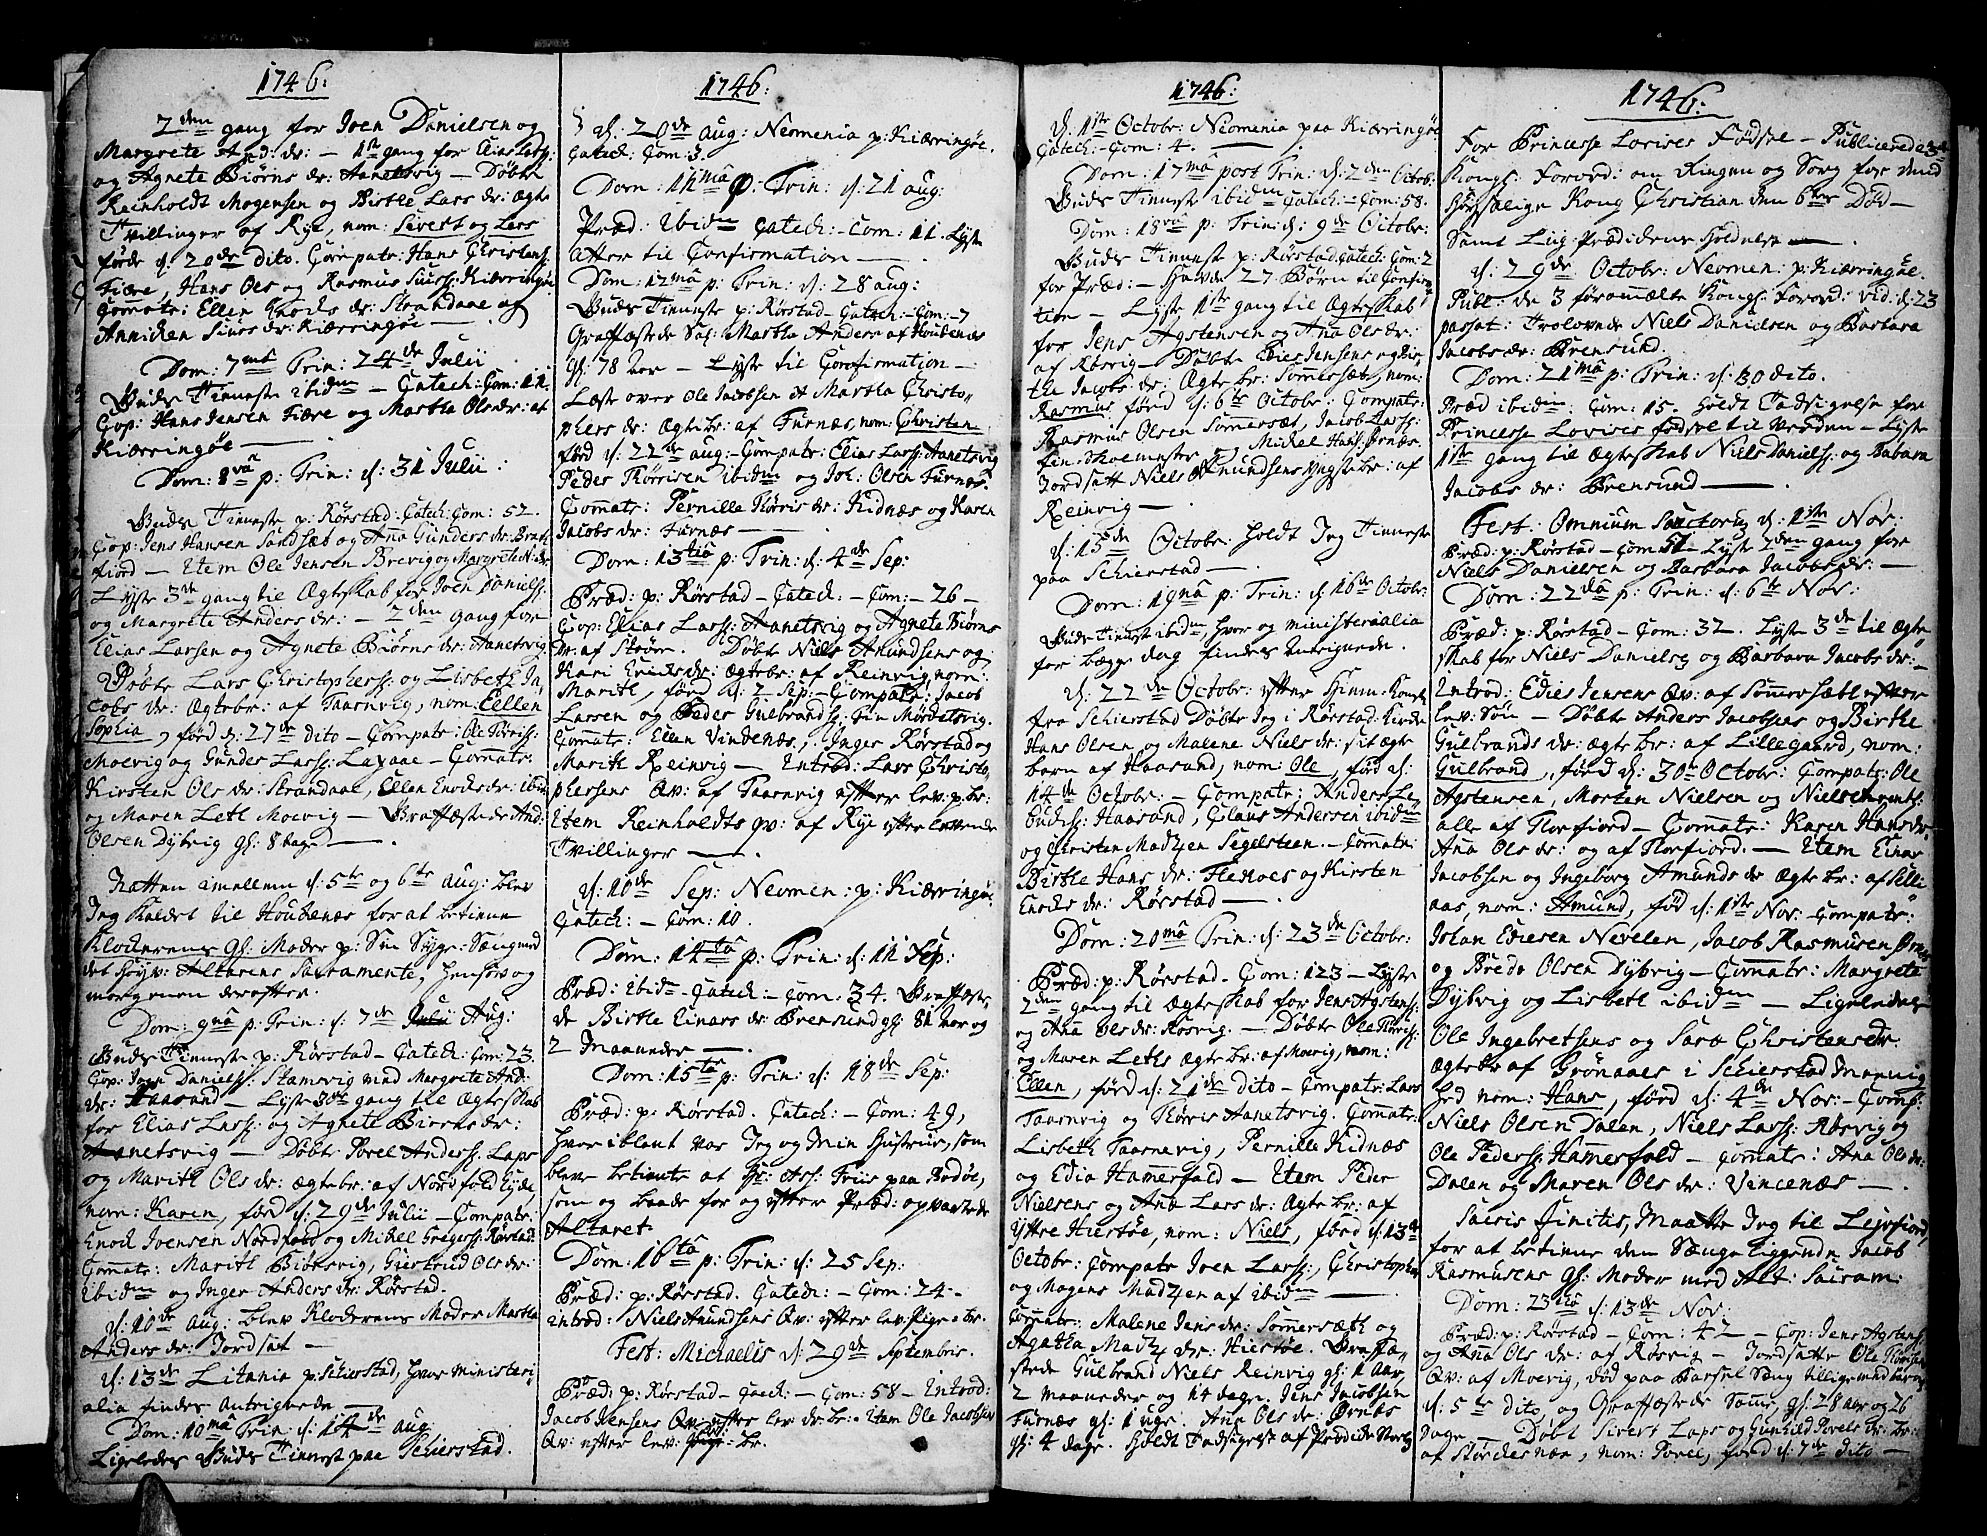 1746:
2den gang for Joen Danielsen og
Margrete And: dr: - 1ste gang for Elias Larss:
og Agnete Biørns dr: Aanetsvig - Døbte
Reinholdt Mogensen og Birthe Lars dr: ægte
Tvillinger af Rye, nom: Sivert og Lars
førde d: 20de dito. Compatr: Hans Christens:
Fiære, Hans Ols og Rasmus Siurss: Kiærringøe
Comatr: Ellen Enochs dr: Strandaae og
Anniken Siurs dr: Kiærringøe
Dom: 7ma Trin: 24de Julii
Guds Tieneste ibidm - Catech: Com: 11.
Cop: Hans Jensen Fiære og Martha Ols dr: af
Kiærringøe
Dom: 8va p: Trin: d: 31 Julii.
Guds Tieneste p: Rørstad: Catech: Com: 52.
Cop: Jens Hansen Sandsæt og Ana Gunders dr:
fiord - Item Ole Jensen Brevig og Margrete
Lyste 3de gang til Ægteskab for Joen Daniels:
og Margrete Anders dr: - 2den gang for
Elias Larsen og Agnete Biørns dr: Aanetsvig
Døbte Lars Christophers: og Lisbeth Ja,
cobs dr: Ægtebr: af Taarnvig, nom: Ellen
Sophia, førd d: 27de dito - Compatr: Ole Tørriss:
Moevig og Gunder Larss: Laxaae - Comatr:
Kirsten Ols dr: Strandaae, Ellen Enochs dr: ibid
og Maren Leth Moevig - Graffæstede And:
Olsen Dybvig gl: 8 dage
Natten imellem d: 5te og 6te Aug: blev
Jeg kaldet til Houkenæs for at betiene
Klockerens gl: Moder p: Sin Syge-Sæng med
det høyv: Altarens Sacramente, hensov og
morgenen derefter.
Dom: 9na p: Trin: d: 7de Julii Aug:
Guds Tieneste p: Rørstad - Catech: Com: 23.
Cop: Joen Daniels: Stamsvig med Margrete And:
dr: Haasand - Lyste 3die gang til Ægteskab
for Elias Larss: og Agnete Biørns dr:
Aanetsvig - Døbte Povel Anderss: Laps
og Marith Ols dr: ægtebr: af Nordfold Eyde
nom: Karen, førd d: 29de Julii - Compatr:
Enoch Joensen Nordfold og Mickel Gregerss: Rørstad
Comatr: Marith Biørsvig, Giertrud Ols dr:
ibidm og Inger Anders dr: Rørstad.
d: 10de Aug: blev Klockerens Moder Martha
Anders dr: Jordsat
d: 13de Litania p: Schierstad, hvor ministeri
alia findes antegnede
Dom: 10ma Trin: d: 14de Aug:
Ligeledes Guds Tieneste paa Schierstad.
1746:
d: 20de Aug: Neomenia p: Kiærringøe.
Catech: Com: 3.
Dom: 11ma p: Trin: d: 21 Aug:
Præd: ibidm Catech: - Com: 11. Lyste
atter til Confirmation
Dom: 12ma p: Trin: d: 28 Aug:
Guds Tieneste p: Rørstad - Catech: - Com: 7
Graffæstede Sal: Martha Anders af Houkenæs
gl: 78 Aar - Lyste til Confirmation -
Læste over Ole Jacobsen et Martha Christo,
phers dr: Ægtebr: af Furnæs, nom: Christen
førd d: 22de Aug: - Compatr: Elias Larss: Aanetsvig
Peder Thørrisen ibidm og Joh: Olsen Furnæs.
Comatr: Pernille Thørris dr: Kidnæs og Karen
Jacobs dr: Furnæs
Dom: 13tia p: Trin: d: 4de Sep:
Præd: p: Rørstad - Catech: - Com: - 26 -
Cop: Elias Larss: Aanetsvig og Agnete Biørns
dr: af Støvr. Døbt Niels Amundsens og
Kari Erichs dr: ægtebr: af Reinvig, nom:
Marith, førd d: 2 Sep: - Compatr: Jacob
Larsen og Peder Gulbrands: fra Mørdetsvig.
Comatr: Ellen Vindenæs, Inger Rørstad og
Marith Reinvig - Introd: Lars Christo,
phersens Qv: af Taarnvig efter lev: p: br:
Item Reinholdts qv: af Rye efter levende
Tvillinger
d: 10de Sep: Neomen: p: Kiærringøe
Catech: - Com: 10.
Dom: 14ta p: Trin: d: 11 Sep:
Præd: ibidm - Catech: - Com: 34. Graffæste
de Birthe Einars dr: Brensund gl: 81 Aar og
2 Maaneder
Dom: 15ta p: Trin: d: 18de Sep:
Præd: p: Rørstad. Catech: - Com: 49,
hvor iblant var Jeg og Min Hustrue, som
blev betiente at Hr: Ass: Friis paa Bodøe,
som og baade for og efter Præd: opvartede
Altaret.
Dom: 16ta p: Trin: d: 25 Sep:
Præd: p: Rørstad. Catech: - Com: 24 -
Introd: Niels Amundsens Qv: efter lev: Pige-br:
Fest: Michaelis d: 29de Septembris.
Præd: p: Rørstad - Catech: - Com: 58 - Introd:
Jacob Jensens Qv: efter lev: dr: br: - Item Ole Jacobsens
Qv: efter lev: br.
1746:
d: 1ste Octobr: Neomenia paa Kiærringøe
Catech: - Com: 4.
Dom: 17ma post Trin: d: 2den Octobr:
Guds Tieneste ibidm Catech: - Com: 58.
Dom: 18va p: Trin: d: 9de Octobr:
Guds Tieneste p: Rørstad. Catech: Com: 2
for Præd: - Havde 27 Børn til Confirma
tion - Lyste 1ste gang til Ægteskab
for Jens Agstensen og Ana Ols dr:
af Røsvig - Døbte Edies Jensens og Bir,
the Jacobs dr: Ægtebr: Sommersæt, nom:
Rasmus, førd d: 6te Octobr: Compatr:
Rasmus Olsen Sommersæt, Jacob Larss:
fin: Skolemester og Mickel Hanss: Ørnæs
Jordsatt Niels Amundsens ynste br: af
Reinvig
d: 15de Octobr: holdt Jeg Tieneste
paa Schierstad
Dom: 19na p: Trin: d: 16de Octobr:
Guds Tieneste ibidm, hvor og ministerialia
for begge dag findes antegnede.
d: 22de Octobr: efter Hiem-Komst
fra Schierstad Døbte Jeg i Rørstad Kirke
Hans Olsen og Malene Niels dr: sit ægte
barn af Haasand, nom: Ole, førd d:
14de Octobr: - Compatr: Anders Ja,
cobss: Haasand, Claus Andersen ibidm
og Christen Madtzen Segelsteen. - Comatr:
Birthe Hans dr: Flekoes og Kirsten
Enochs dr: Rørstad
Dom: 20ma Trin: d: 23de Octobr:
Præd: p: Rørstad - Com: 123 - Lyste
2den gang til Ægteskab for Jens Agstenss:
og Ana Ols dr: Røsvig. - Døbte Ole Thørriss:
og Maren Leths Ægtebr: af Moevig, nom:
Ellen, førd d: 21de dito - Compatr: Lars
Taarnvig og Thørris Aanetsvig. Comatr:
Lisbeth Taarnevig, Pernille Kidnæs
og Edia Hamerfald - Item Peder
Nielsens og Ana Lars dr: Ægtebr: af
Yttre Hiertøe, nom: Niels, førd d: 13de
Octobr: Compatr Joen Larss:, Christopher
og Mogens Madtzen af ibidm
Comatr: Malene Jens dr: Sommersæth og
Agatha Madtz dr: Hiertøe. Graffæ,
stede Gulbrand Niels Reinvig gl: 1 Aar,
2 maaneder og 14 dage. Jens Jacobsen
Furnæs gl: 1 uge. Ane Ols dr: Ørnæs
gl: 4 dage. Holdt Tadsigelse af Prædikestol
1746:
For Princesse Lovises Fødsel - Publicerede 3de
Kongl: Forord: om Ringen og Sorg for sin
Høysalige Kong Christian den 6tes Død -
Samt Liig-Prædickens Holdelse
d: 29de Octobr: Neomen: p: Kiærringøe.
Publ: de 3 forommelte Kongl: Forord: vid: d: 23
passat: Trolovede Niels Danielsen og Barbara
Jacobs dr: Brensund.
Dom: 21ma p: Trin: d: 30 dito.
Præd ibidm. Com: 15. Holdt Tadsigelse for
Princesse Lovises fødsel til Verden - Lyste
1ste gang til Ægteskab Niels Daniels: og Babara
Jacobs dr: Brensund
Fest: Omnium Sanctorum d: 1ste Nov:
Præd: p: Rørstad - Com: 51 - Lyste 2den gang for
Niels Danielsen og Barbara Jacobs dr:
Dom: 22da p: Trin: d: 6te Nov:
Præd: p: Rørstad - Com: 32. Lyste 3de til Ægte
skab for Niels Danielsen og Barbara Jacobs dr:
Introd: Edies Jensens Qv: af Sommersæth efter
lev: Søn - Døbte Anders Jacobsens og Birthe
Gulbrands dr: Ægtebr: af Lillegaard, nom:
Gulbrand, førd d: 30te Octobr: Compatr: Ole
Agstensen, Morten Nielsen og Niels
alle af Torfiord - Comatr: Karen Hans dr:
Ana Ols dr: og af Torfiord. - Item Einar
Jacobsen og Ingeborg Amunds dr Ægtebr: af Selli
aas, nom: Amund, fød d: 1ste Nov: - Compatr:
Johan Ediesen Nevelen, Jacob Rasmusen
og Brede Olsen Dybvig - Comatr: Margrete
Dybvig og Lisbeth ibidm - Ligeledes
Ole Ingebretsens og Sara Christens dr:
Ægtebr af Grønaaes i Schierstad
nom: Hans, førd d: 4de Nov: - Comp:
Niels Olsen Dalen, Niels Larss: Røsvig og
Ole Pederss: Hamerfald - Comatr: Ana Ols dr:
Dalen og Maren Ols dr: Vincenæs
Sacris finitis, Maatte Jeg til Leyrfiord,
for at betiene den Sænge-liggende Jacob
Rasmusens gl: Moder med Alt: Sacram:
Dom: 23tia d: 13de Nov:
Præd: p: Rørstad - Com: 42 - Cop: Jens Agstens:
og Ana Ols dr: af Røsvig - Jordsatte Ole Thørrisen
Qv: af Moevig, død paa Barsel Sæng tillige med barnet
d: 5te dito og Graffæstede Samme, gl: 28 aar og 26
dage - Døbt Sivert Laps og Gunhild Povels dr: br:
af Størkesnæs, nom: Povel, førd d: 7de dito